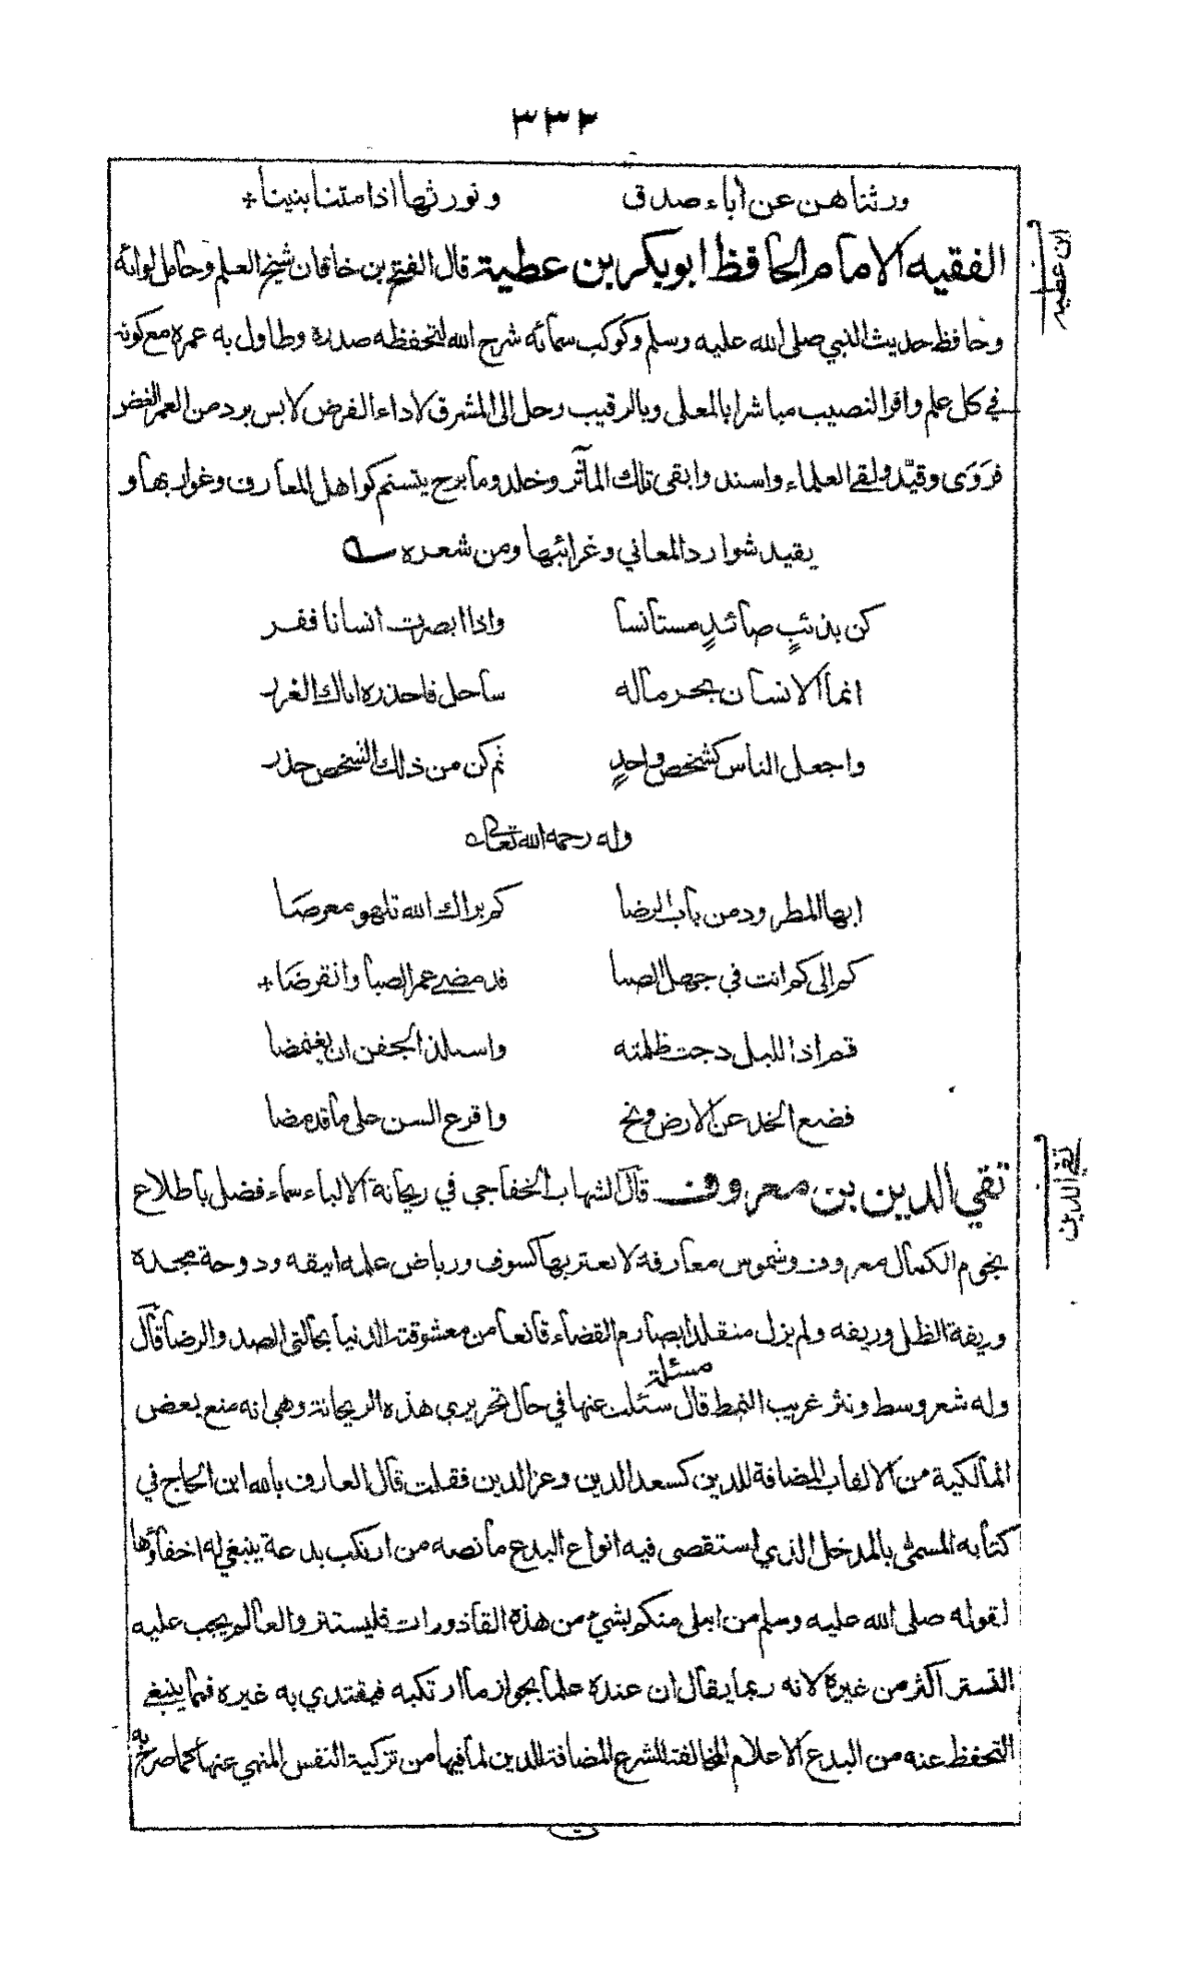 ٣٣٢
ورثناهن عن أباء صدق ونورثها اذا متنا بنينا
ابن عطيه
الفقيه الامام الحافظ ابو بكر بن عطية قال الفتح بن خاقان شيخ العلم وحامل لوائه
وحافظ حديث النبي صلى الله عليه وسلم وكوكب سمائه شرح الله لتحفظه صدره وطاول به عمره مع كونه
في كل علم وافر النصيب مباشرا بالمعلى وبالرقيب رحل الى المشرق لاداء الفرض لابس برد من العمر الغض
فرَوَى وقيّد ولقي العلماء واسند وابقى تلك المآثر وخلد وما برح يتسنم كواهل المعارف وغواربها و
يقيد شوارد المعاني وغرائبها ومن شعره
كن بذئبٍ صائدٍ مستأنسا واذا ابصرت انسانا ففر
انما الانسان بحر ماله ساحل فاحذره اياك الغرر
واجعل الناس كشخص واحدٍ ثم كن من ذلك الشخص حذر
وله رحمه الله تعالى
ايها المطرود من باب الرضا كم يراك الله تلهو معرضَا
كم الى كم انت في جهل الصبا قد مضى عمر الصبا وانقرضَا
قم اذا الليل دجت ظلمته واستلذ الجفن ان يغمضا
فضع الخد على الارض ونح واقرع السن على ما قد مضا
تقي الدين
تقي الدين بن معروف قال الشهاب الخفاجي في ريحانة الالباء سماء فضل باطلاع
نجوم الكمال معروف وشموس معارفه لا يعتريها كسوف ورياض علمه انيقه ودوحة مجده
وريفة الظل وريفه ولم يزل متقلدا بصارم القضاء قانعا من معشوقته الدنيا بحالتي الصد والرضا قال
وله شعر وسط ونثر غريب النمط قال مسئلة سئلت عنها في حال تحريري هذه الريحانة وهي انه منع بعض
المالكية من الالقاب المضافة للدين كسعد الدين وعز الدين فقلت قال العارف بالله ابن الحاج في
كتابه المسمى بالمدخل الذي استقصى فيه انواع البدع ما نصه من ارتكب بدعة ينبغي له اخفاؤها
لقوله صلى الله عليه وسلم من ابتلى منكم بشيء من هذه القاذورات فليستتر والعالم يجب عليه
التستر اكثر من غيره لانه ربما يقال ان عنده علما بجواز ما ارتكبه فيقتدي به غيره فمما ينبغي
التحفظ عنه من البدع الاعلام المخالفة للشرع المضافة للدين لما فيها من تزكية النفس المنهي عنها كما صرح به